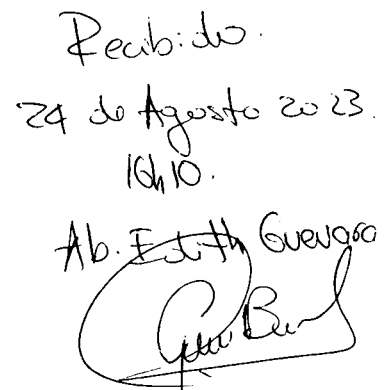 Recibido.
24 de Agosto 2023.
16h10.
Ab. Edith Guevara